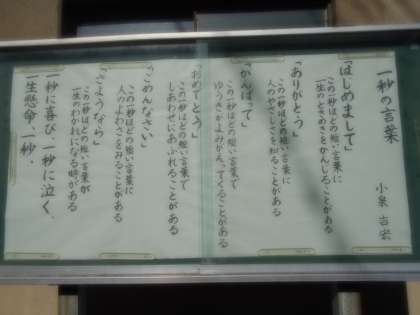 一秒の言葉
小泉吉宏
「はじめまして」
この一秒ほどの短い言葉に
一生のときめきをかんじることがある
「ありがとう」
この一秒ほどの短い言葉に
人のやさしさを知ることがある
「がんばって」
この一秒ほどの短い言葉で
ゆうきがよみがえってくることがある
「おめでとう」
この一秒ほどの短い言葉で
しあわせにあふれることがある
「ごめんなさい」
この一秒ほどの短い言葉に
人のよわさをみることがある
「さようなら」
この一秒ほどの短い言葉が
一生のわかれになる時がある
一秒に喜び、一秒に泣く、
一生懸命、一秒。